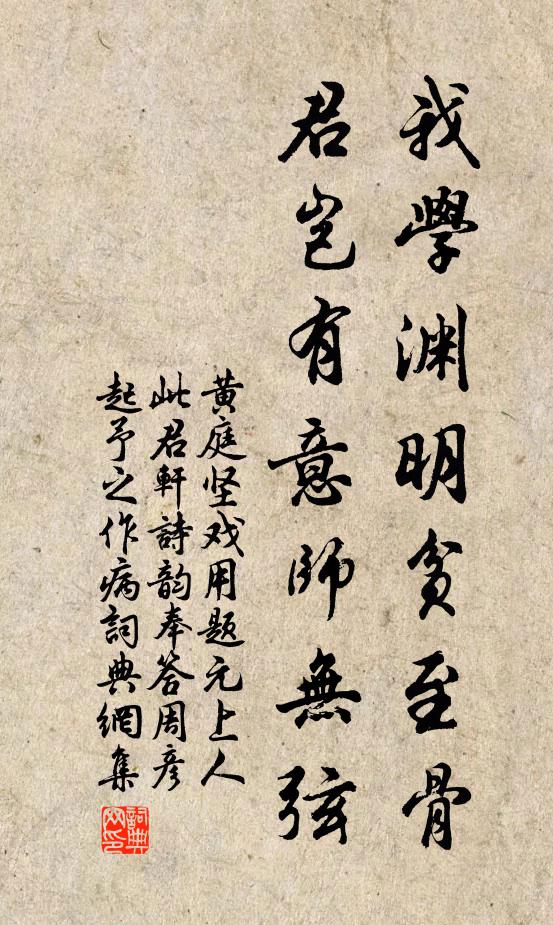 我學渊明貧至骨
君岂有意師無弦
黄庭坚戏用题元上人
此君軒詩韵奉答周彦
起予之作病詞典網集
詞典
网印